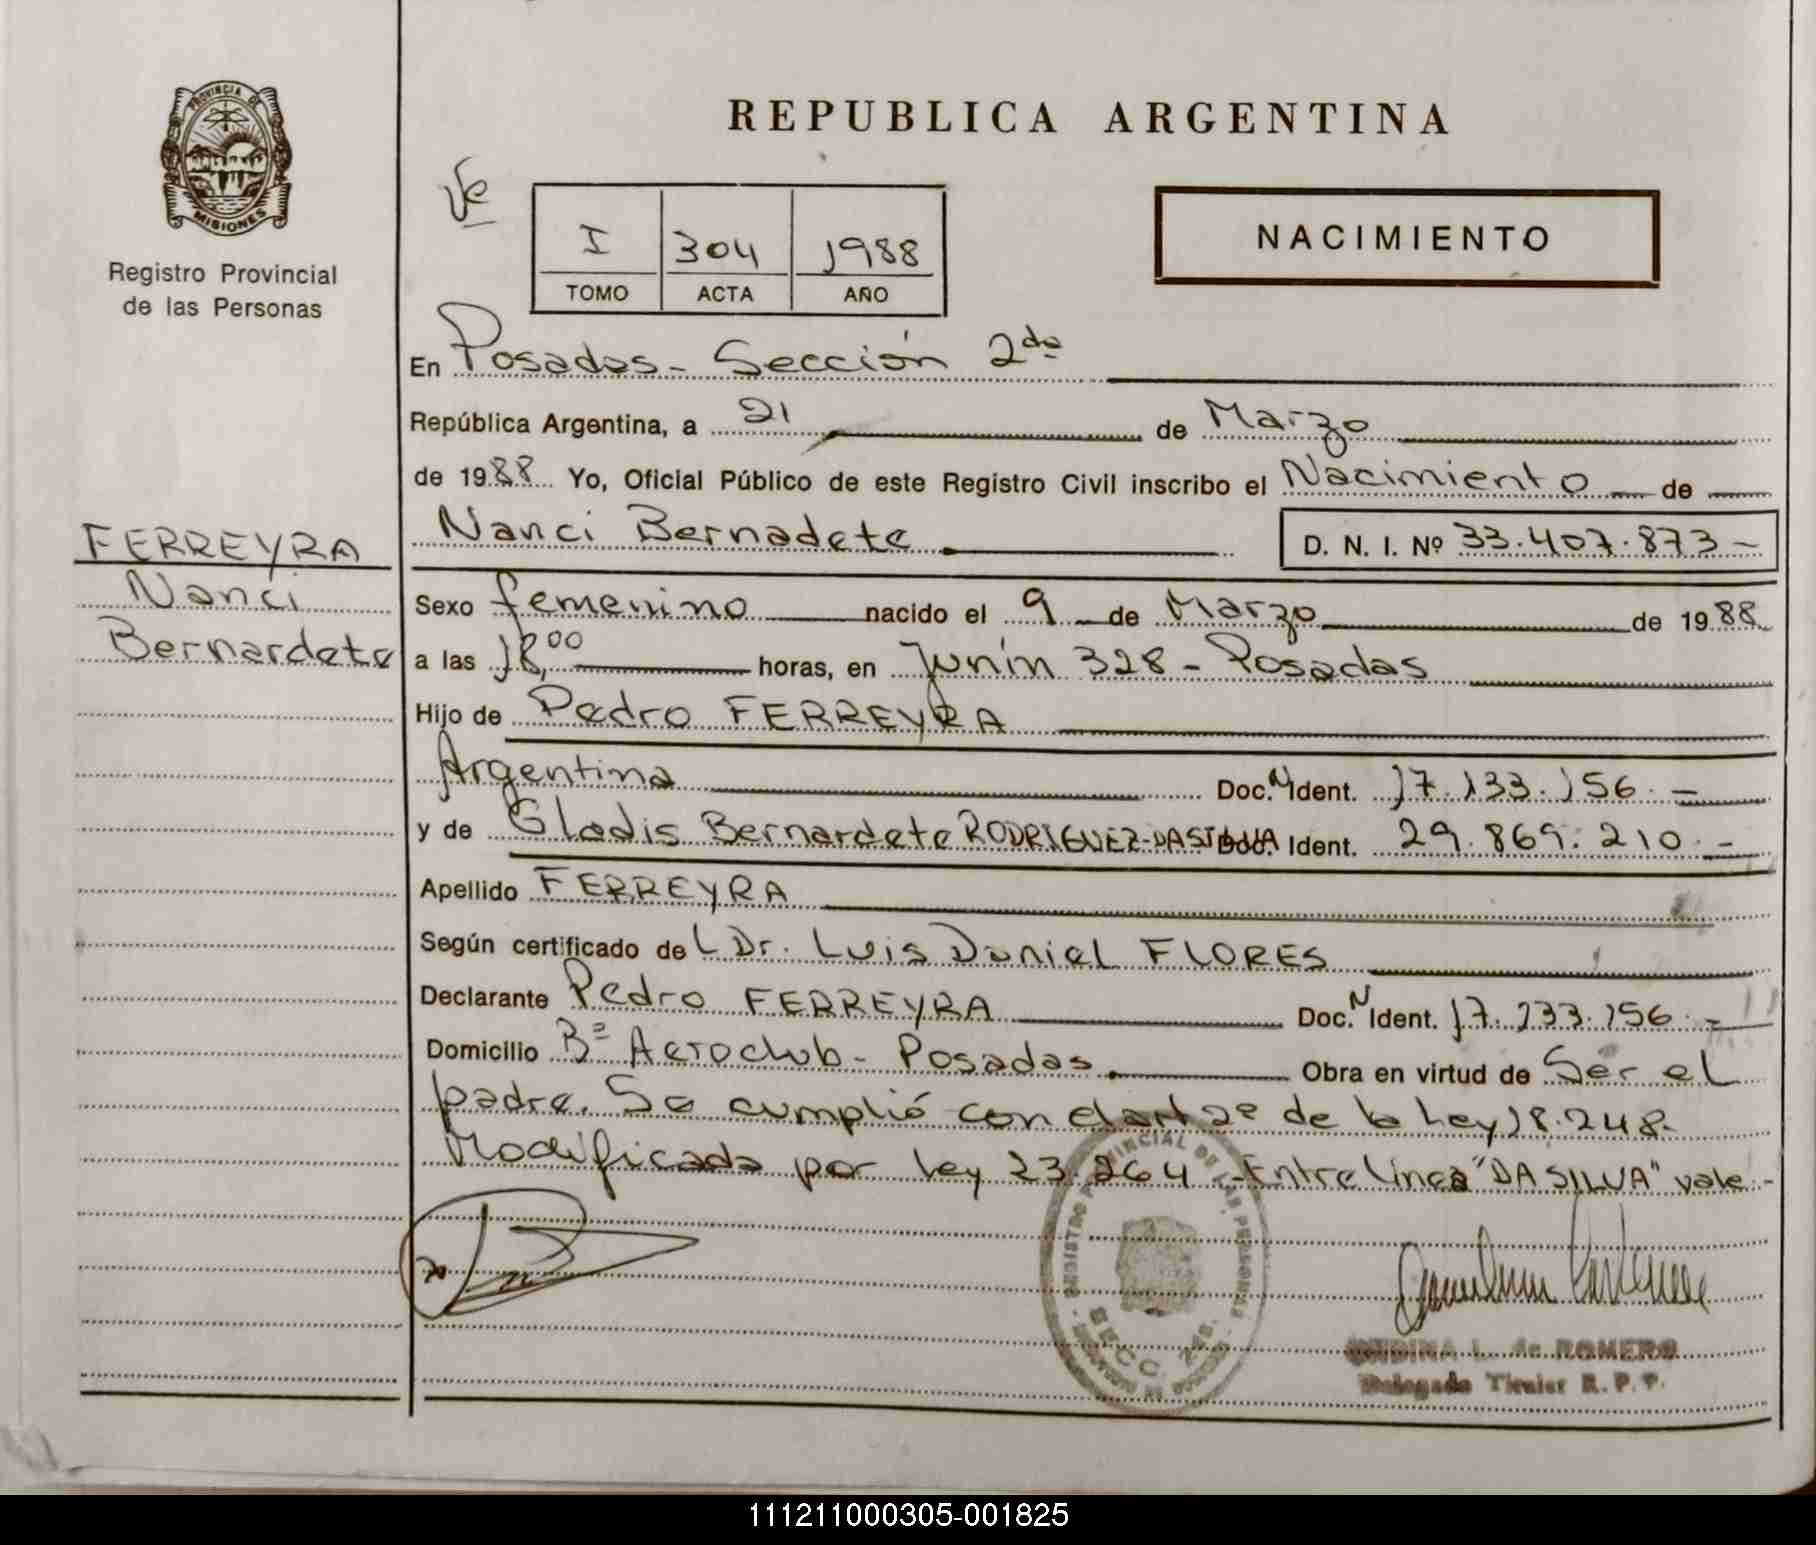 PROVINCIA DE
MISIONES
Registro Provincial
de las Personas
REPUBLICA ARGENTINA
I 304 1988
TOMO ACTA AÑO
NACIMIENTO
En Posadas - Sección 2da
República Argentina, a 21 de Marzo
de 1988 Yo, Oficial Público de este Registro Civil inscribo el Nacimiento de
FERREYRA
Nanci
Bernardete
Nanci Bernadete D. N. I. Nº 33.407.873 -
Sexo femenino nacido el 9 de Marzo de 1988
a las 18,00 horas, en Junín 328 - Posadas
Hijo de Pedro FERREYRA
Argentina Doc. N Ident. 17.133.156. -
y de Gladis Bernardete RODRIGUEZ-DASILVA Doc. Ident. 29.869.210. -
Apellido FERREYRA
Según certificado de L Dr. Luis Daniel FLORES
Declarante Pedro FERREYRA Doc. N Ident. 17.133.156. -
Domicilio Bº Aeroclub - Posadas Obra en virtud de Ser el
padre. Se cumplió con el art 2º de la Ley 18.248.
Modificada por ley 23.264 - Entre línea "DA SILVA" vale. -
REGISTRO PROVINCIAL DE LAS PERSONAS
SECC. 2da.
L. de ROMERO
Delegado Titular R. P. P.
111211000305-001825